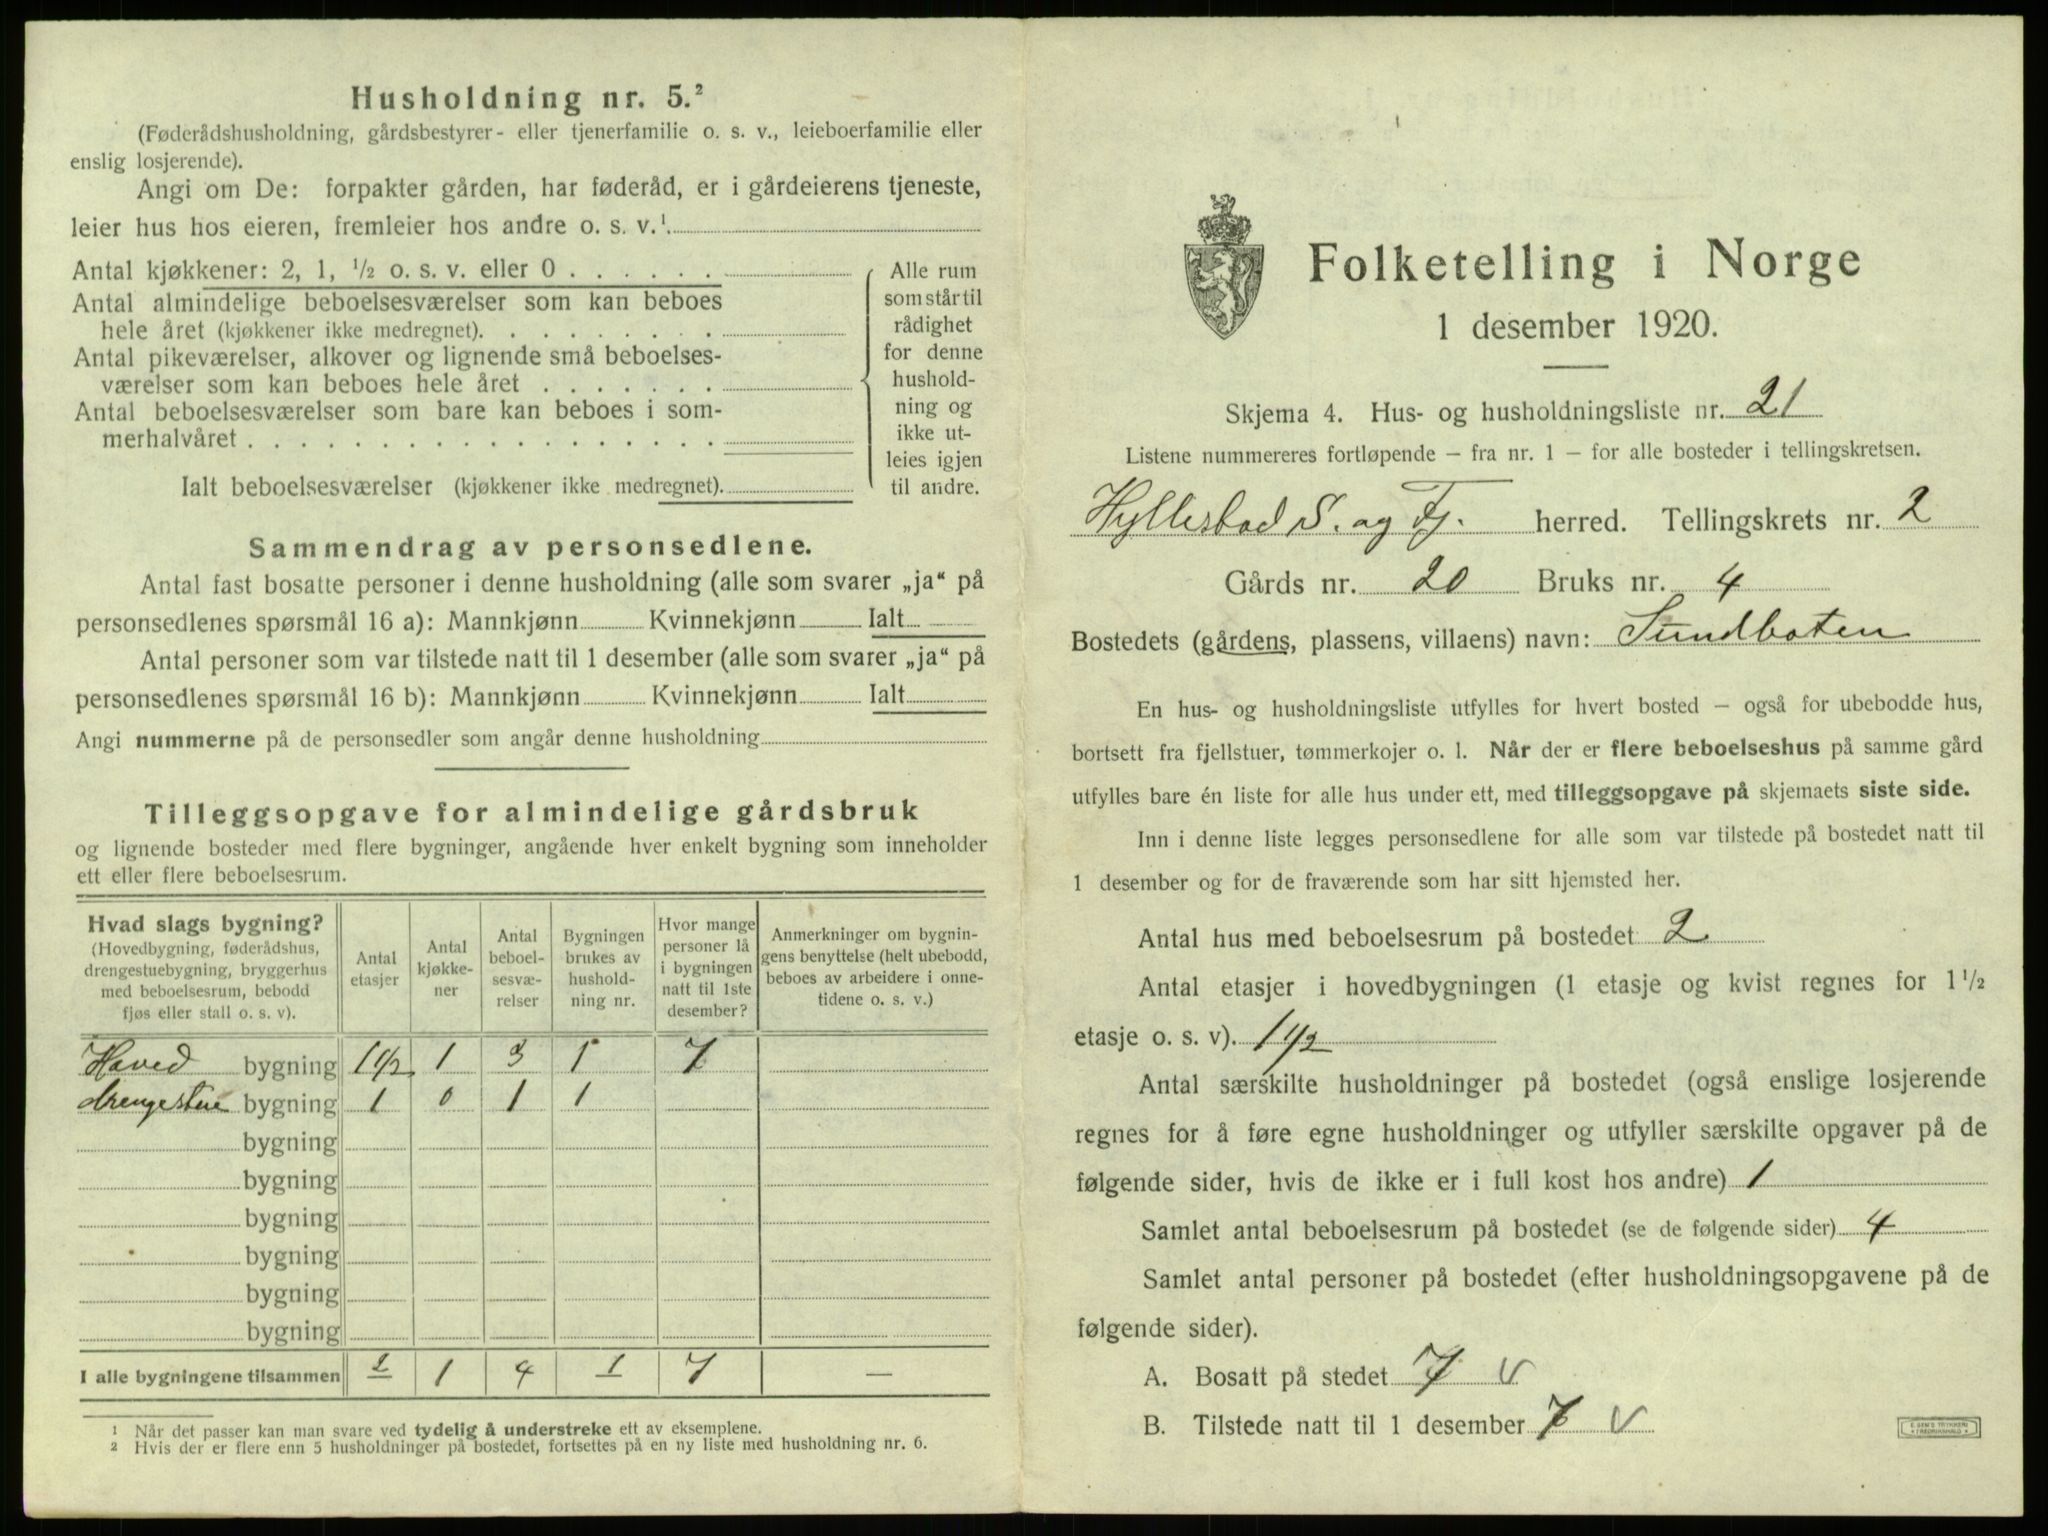 Husholdning nr. 5.²
(Føderådshusholdning, gårdsbestyrer- eller tjenerfamilie o. s. v., leieboerfamilie eller
enslig losjerende).
Angi om De: forpakter gården, har føderåd, er i gårdeierens tjeneste,
leier hus hos eieren, fremleier hos andre o. s. v.¹
Antal kjøkkener: 2, 1, ½ o. s. v. eller 0
Antal almindelige beboelsesværelser som kan beboes
hele året (kjøkkener ikke medregnet).
Antal pikeværelser, alkover og lignende små beboelses-
værelser som kan beboes hele året
Antal beboelsesværelser som bare kan beboes i som-
merhalvåret
Ialt beboelsesværelser (kjøkkener ikke medregnet).
Alle rum
som står til
rådighet
for denne
hushold-
ning og
ikke ut-
leies igjen
til andre.
Sammendrag av personsedlene.
Antal fast bosatte personer i denne husholdning (alle som svarer „ja“ på
personsedlenes spørsmål 16 a): Mannkjønn Kvinnekjønn Ialt
Antal personer som var tilstede natt til 1 desember (alle som svarer „ja“ på
personsedlenes spørsmål 16 b): Mannkjønn Kvinnekjønn Ialt
Angi nummerne på de personsedler som angår denne husholdning
Tilleggsopgave for almindelige gårdsbruk
og lignende bosteder med flere bygninger, angående hver enkelt bygning som inneholder
ett eller flere beboelsesrum.
Hvad slags bygning?
(Hovedbygning, føderådshus,
drengestuebygning, bryggerhus
med beboelsesrum, bebodd
fjøs eller stall o. s. v).
Antal
etasjer
Antal
kjøkke-
ner
Antal
beboel-
sesvæ-
relser
Bygningen
brukes av
hushold-
ning nr.
Hvor mange
personer lå
i bygningen
natt til 1ste
desember?
Anmerkninger om bygnin-
gens benyttelse (helt ubebodd,
beboes av arbeidere i onne-
tidene o. s. v.)
Hoved bygning 1 1/2 1 3 1 7
drengestue bygning 1 0 1 1
bygning
bygning
bygning
bygning
bygning
bygning
I alle bygningene tilsammen 2 1 4 1 7 —
¹ Når det passer kan man svare ved tydelig å understreke ett av eksemplene.
² Hvis der er flere enn 5 husholdninger på bostedet, fortsettes på en ny liste med husholdning nr. 6.
Folketelling i Norge
1 desember 1920.
Skjema 4. Hus- og husholdningsliste nr. 21
Listene nummereres fortløpende – fra nr. 1 – for alle bosteder i tellingskretsen.
Hyllestad S. og Fj. herred. Tellingskrets nr. 2
Gårds nr. 20 Bruks nr. 4
Bostedets (gårdens, plassens, villaens) navn: Sundboten
En hus- og husholdningsliste utfylles for hvert bosted – også for ubebodde hus,
bortsett fra fjellstuer, tømmerkojer o. l. Når der er flere beboelseshus på samme gård
utfylles bare én liste for alle hus under ett, med tilleggsopgave på skjemaets siste side.
Inn i denne liste legges personsedlene for alle som var tilstede på bostedet natt til
1 desember og for de fraværende som har sitt hjemsted her.
Antal hus med beboelsesrum på bostedet 2
Antal etasjer i hovedbygningen (1 etasje og kvist regnes for 1 ½
etasje o. s. v). 1 1/2
Antal særskilte husholdninger på bostedet (også enslige losjerende
regnes for å føre egne husholdninger og utfyller særskilte opgaver på de
følgende sider, hvis de ikke er i full kost hos andre) 1
Samlet antal beboelsesrum på bostedet (se de følgende sider) 4
Samlet antal personer på bostedet (efter husholdningsopgavene på de
følgende sider).
A. Bosatt på stedet 7 v
B. Tilstede natt til 1 desember 7 v
E. SEM'S TRYKKERI
FREDRIKSHALD